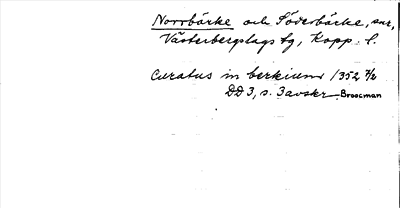 Norrbärke och Söderbärke, snr,
Västerbergslags tg, Kopp. l.
Curatus in berkium 1352 7/2
DD 3, s. 3 avskr. Broocman